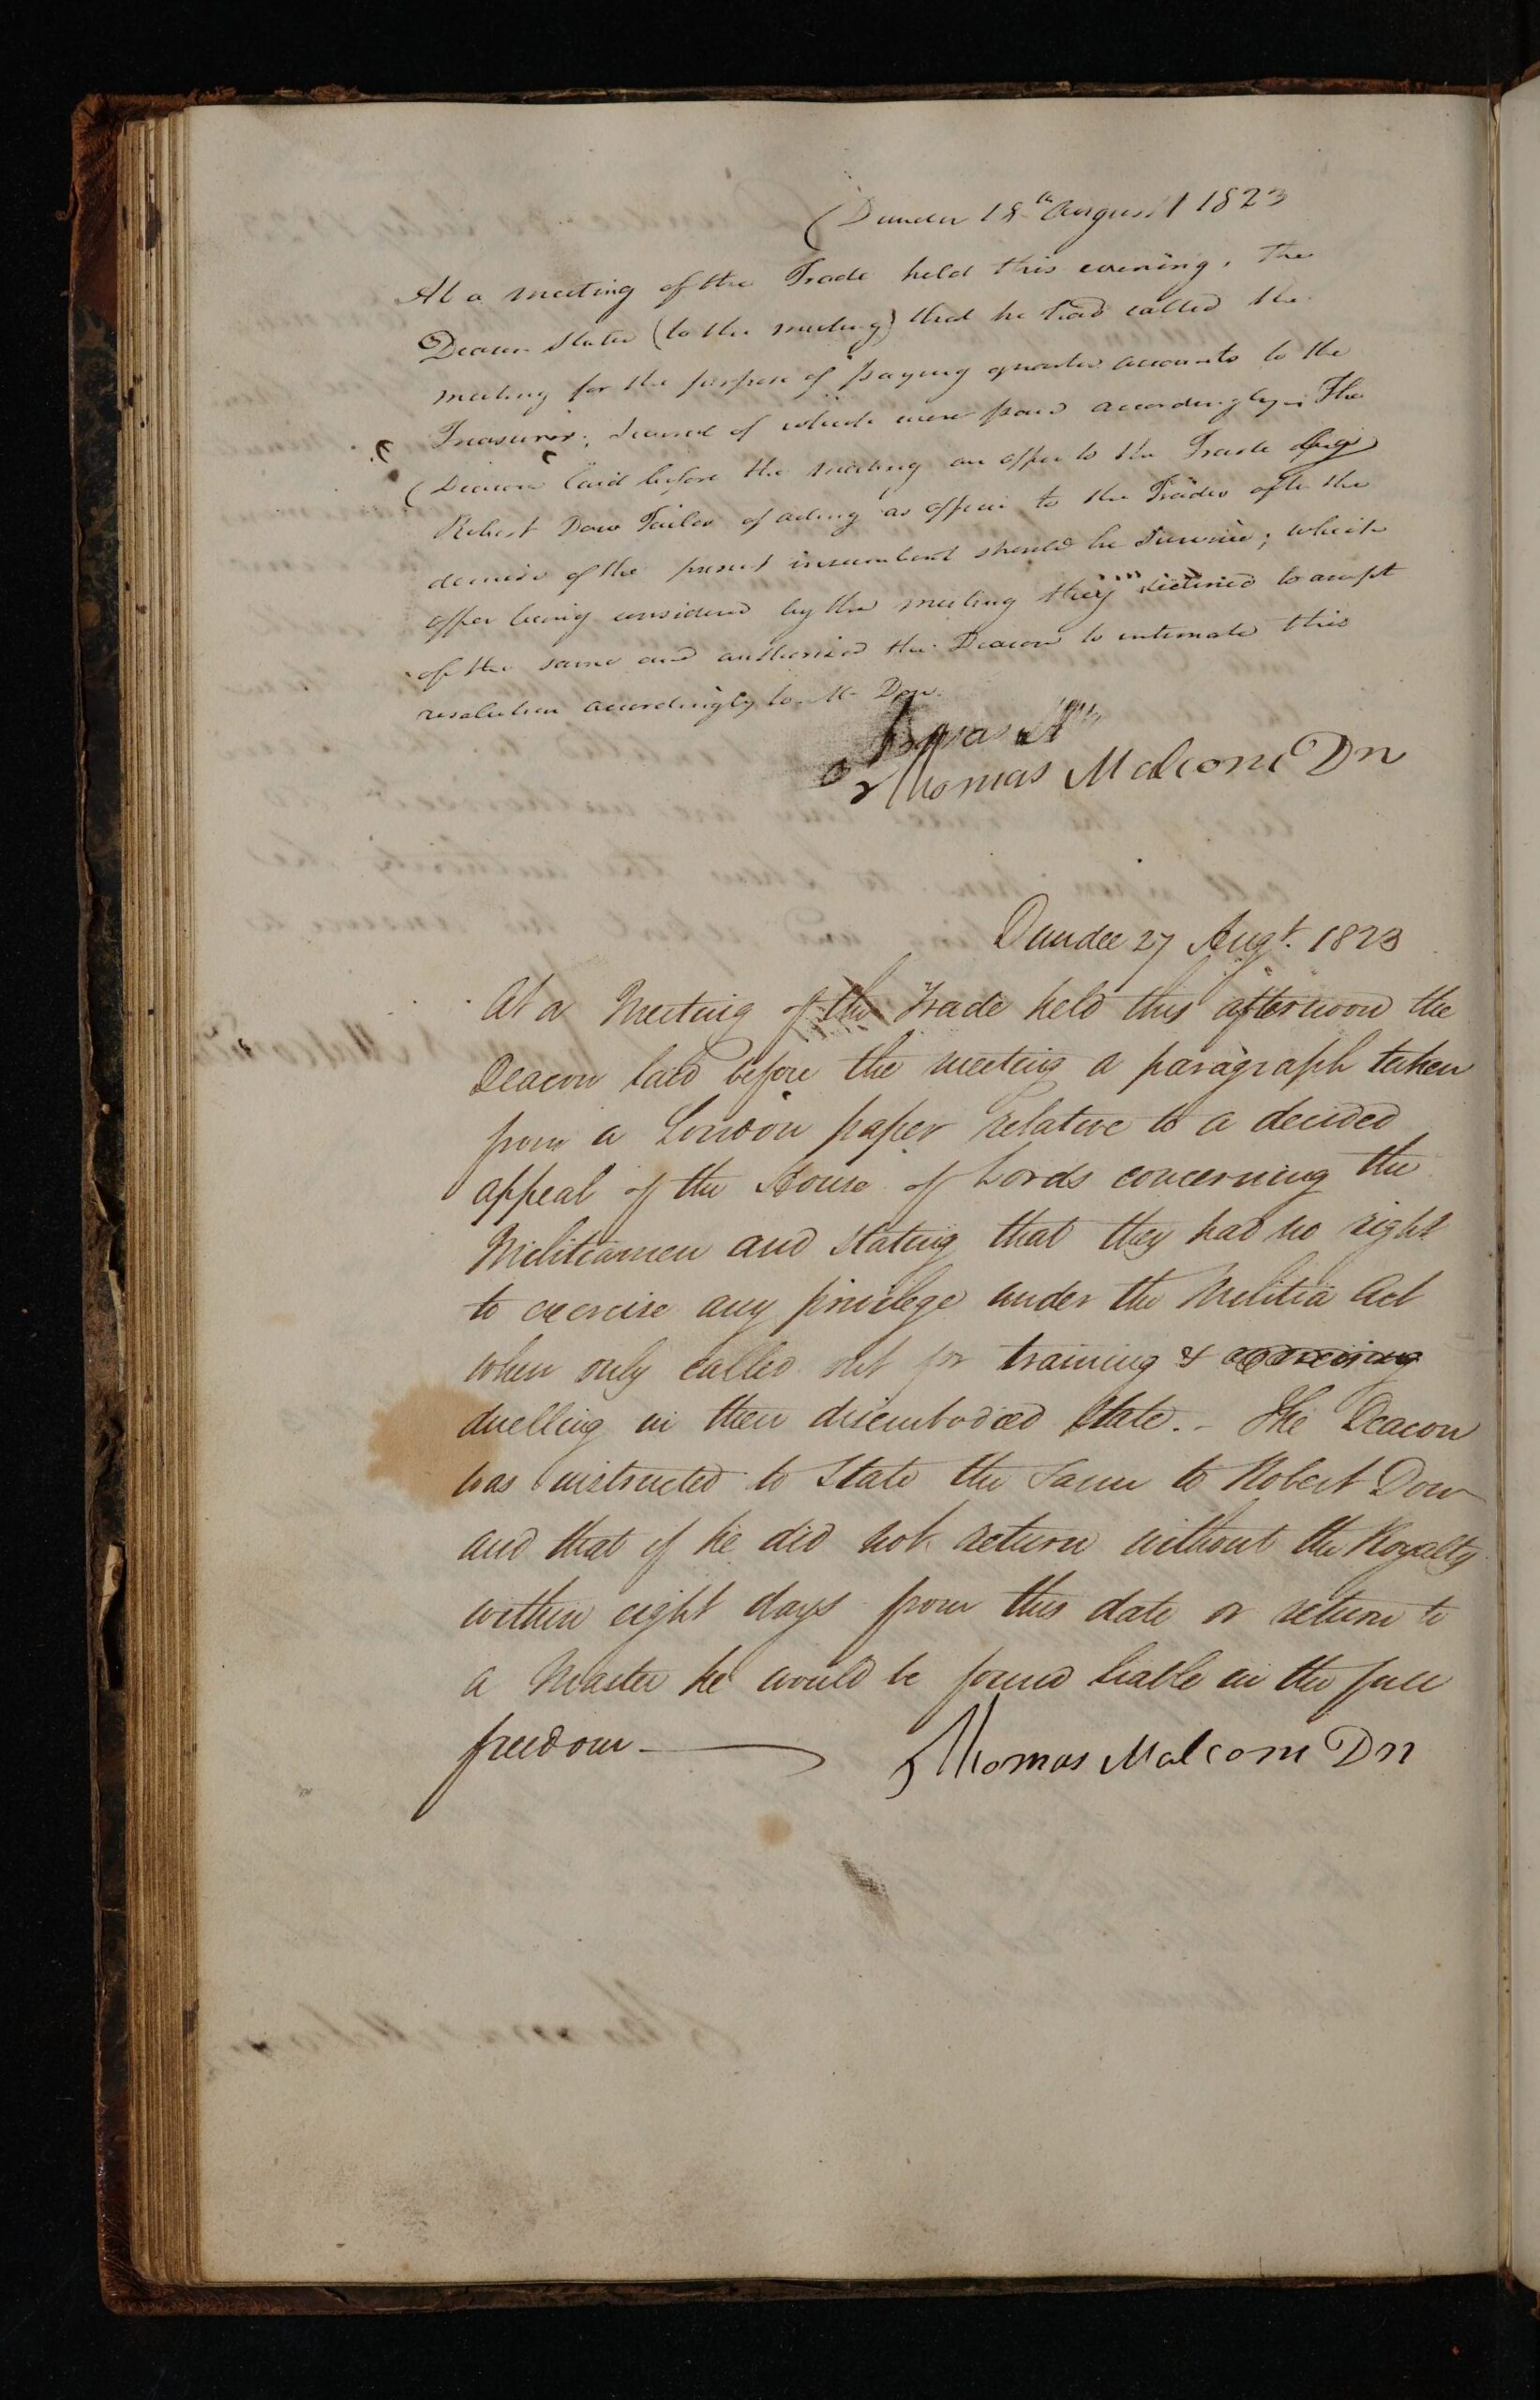 Dundee 18th August 1823
At a meeting of the Trade held this evening, the
Deacon stated (to the meeting) that he had called the
meeting for the purpose of paying quarter accounts to the
Treasurer; several of which were paid accordingly – The
Deacon laid before the meeting an offer to the Trade by
Robert Dow Tailor of acting as officer to the Trades after the
demise of the present incumbent should he survive; which
offer being considered by the meeting they declined to accept
of the same and authorised the Deacon to intimate this
resolution accordingly to Mr Dow.
Thomas Malcom Dn
Dundee 27 Augt. 1823
At a Meeting of the Trade held this afternoon the
Deacon laid before the meeting a paragraph taken
from a London paper relative to a decided
appeal of the House of Lords concerning the
Militiamen and stating that they had no right
to exercise any privilege under the Militia Act
when only called out for training &
duelling in their disembodied state. – The Deacon
was instructed to state the same to Robert Dow
and that if he did not return without the Royalty
within eight days from this date or return to
a Master he would be found liable in the full
freedom —
Thomas Malcom Dn